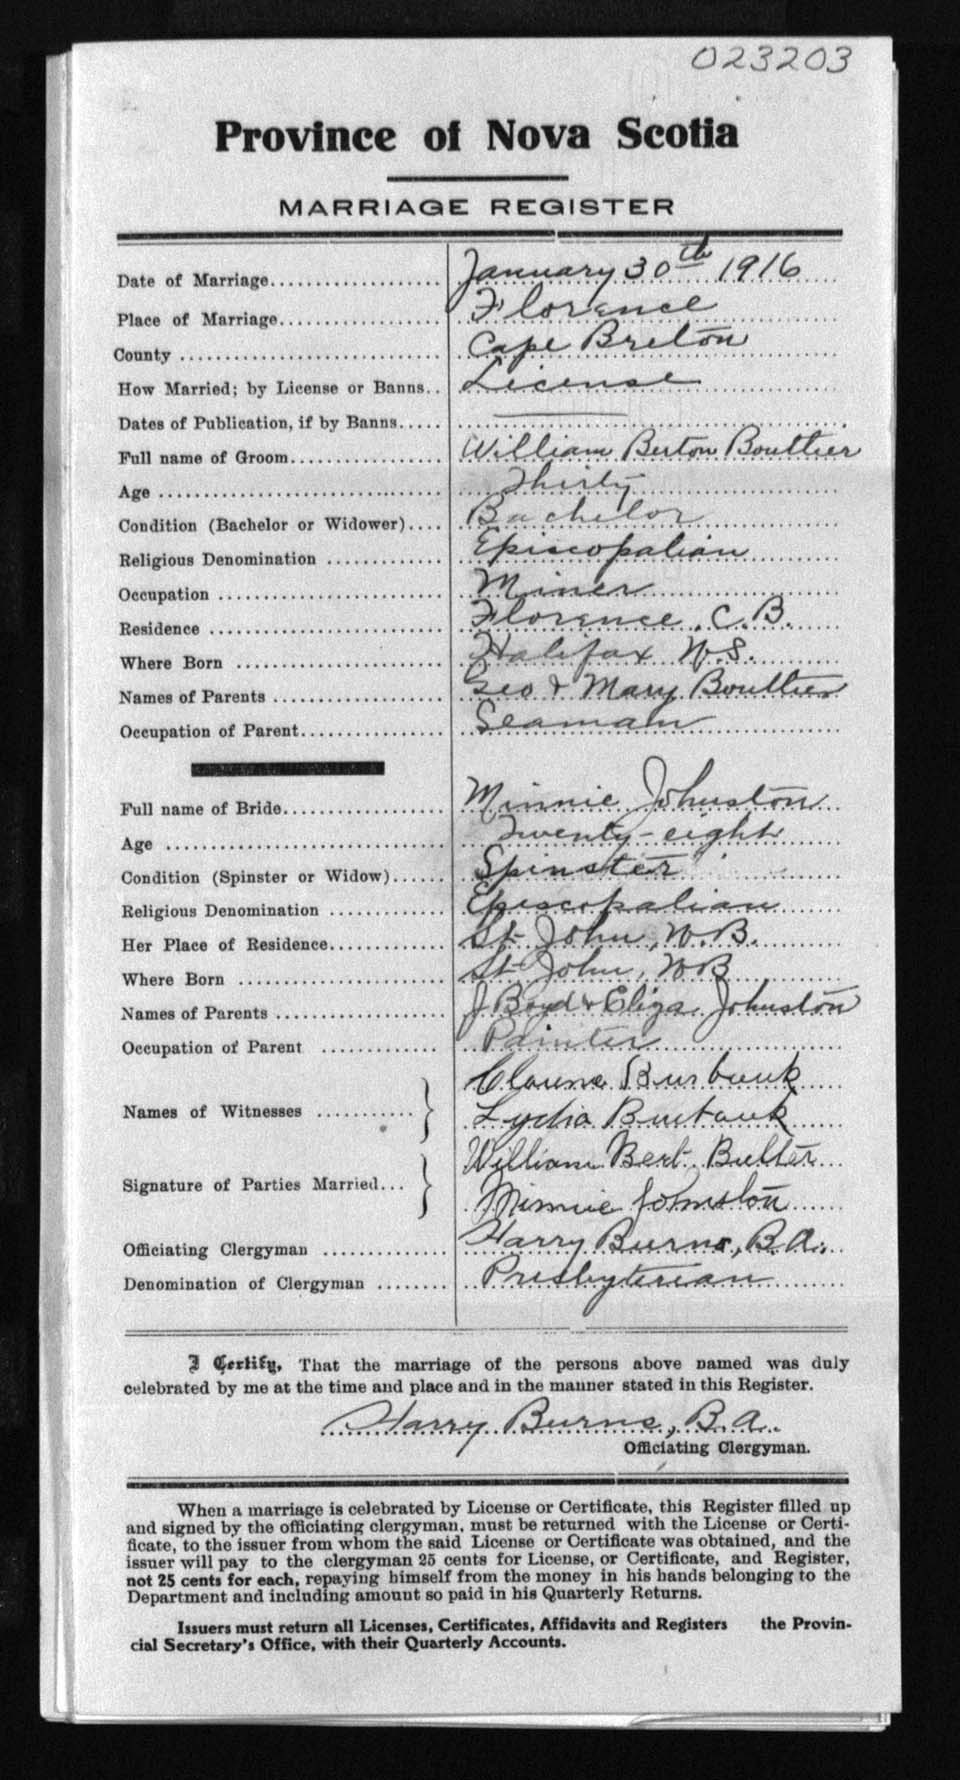 023203
Province of Nova Scotia
MARRIAGE REGISTER
Date of Marriage................... January 30th 1916
Place of Marriage.................. Florence
County ............................ Cape Breton
How Married; by License or Banns.. License
Dates of Publication, if by Banns.....
Full name of Groom................. William Burton Bouttier
Age ............................... Thirty
Condition (Bachelor or Widower).... Bachelor
Religious Denomination ............. Episcopalian
Occupation ........................ Miner
Residence ......................... Florence, C.B.
Where Born ........................ Halifax N.S.
Names of Parents .................. Geo & Mary Bouttier
Occupation of Parent............... Seaman
Full name of Bride................. Minnie Johnston
Age ............................... Twenty-eight
Condition (Spinster or Widow)...... Spinster
Religious Denomination ............ Episcopalian
Her Place of Residence............. St John, N.B.
Where Born ........................ St John, NB
Names of Parents .................. J Boyd & Eliza Johnston
Occupation of Parent ............ Painter
Names of Witnesses ........... } Burbank
Lydia Burbank
Signature of Parties Married... } William Bert Butler
Minnie Johnston
Officiating Clergyman ............. Harry Burns, B.A.
Denomination of Clergyman ........ Presbyterian
I Certify, That the marriage of the persons above named was duly
celebrated by me at the time and place and in the manner stated in this Register.
Harry Burns, B.A.
Officiating Clergyman.
When a marriage is celebrated by License or Certificate, this Register filled up
and signed by the officiating clergyman, must be returned with the License or Certi-
ficate, to the issuer from whom the said License or Certificate was obtained, and the
issuer will pay to the clergyman 25 cents for License, or Certificate, and Register,
not 25 cents for each, repaying himself from the money in his hands belonging to the
Department and including amount so paid in his Quarterly Returns.
Issuers must return all Licenses, Certificates, Affidavits and Registers the Provin-
cial Secretary's Office, with their Quarterly Accounts.